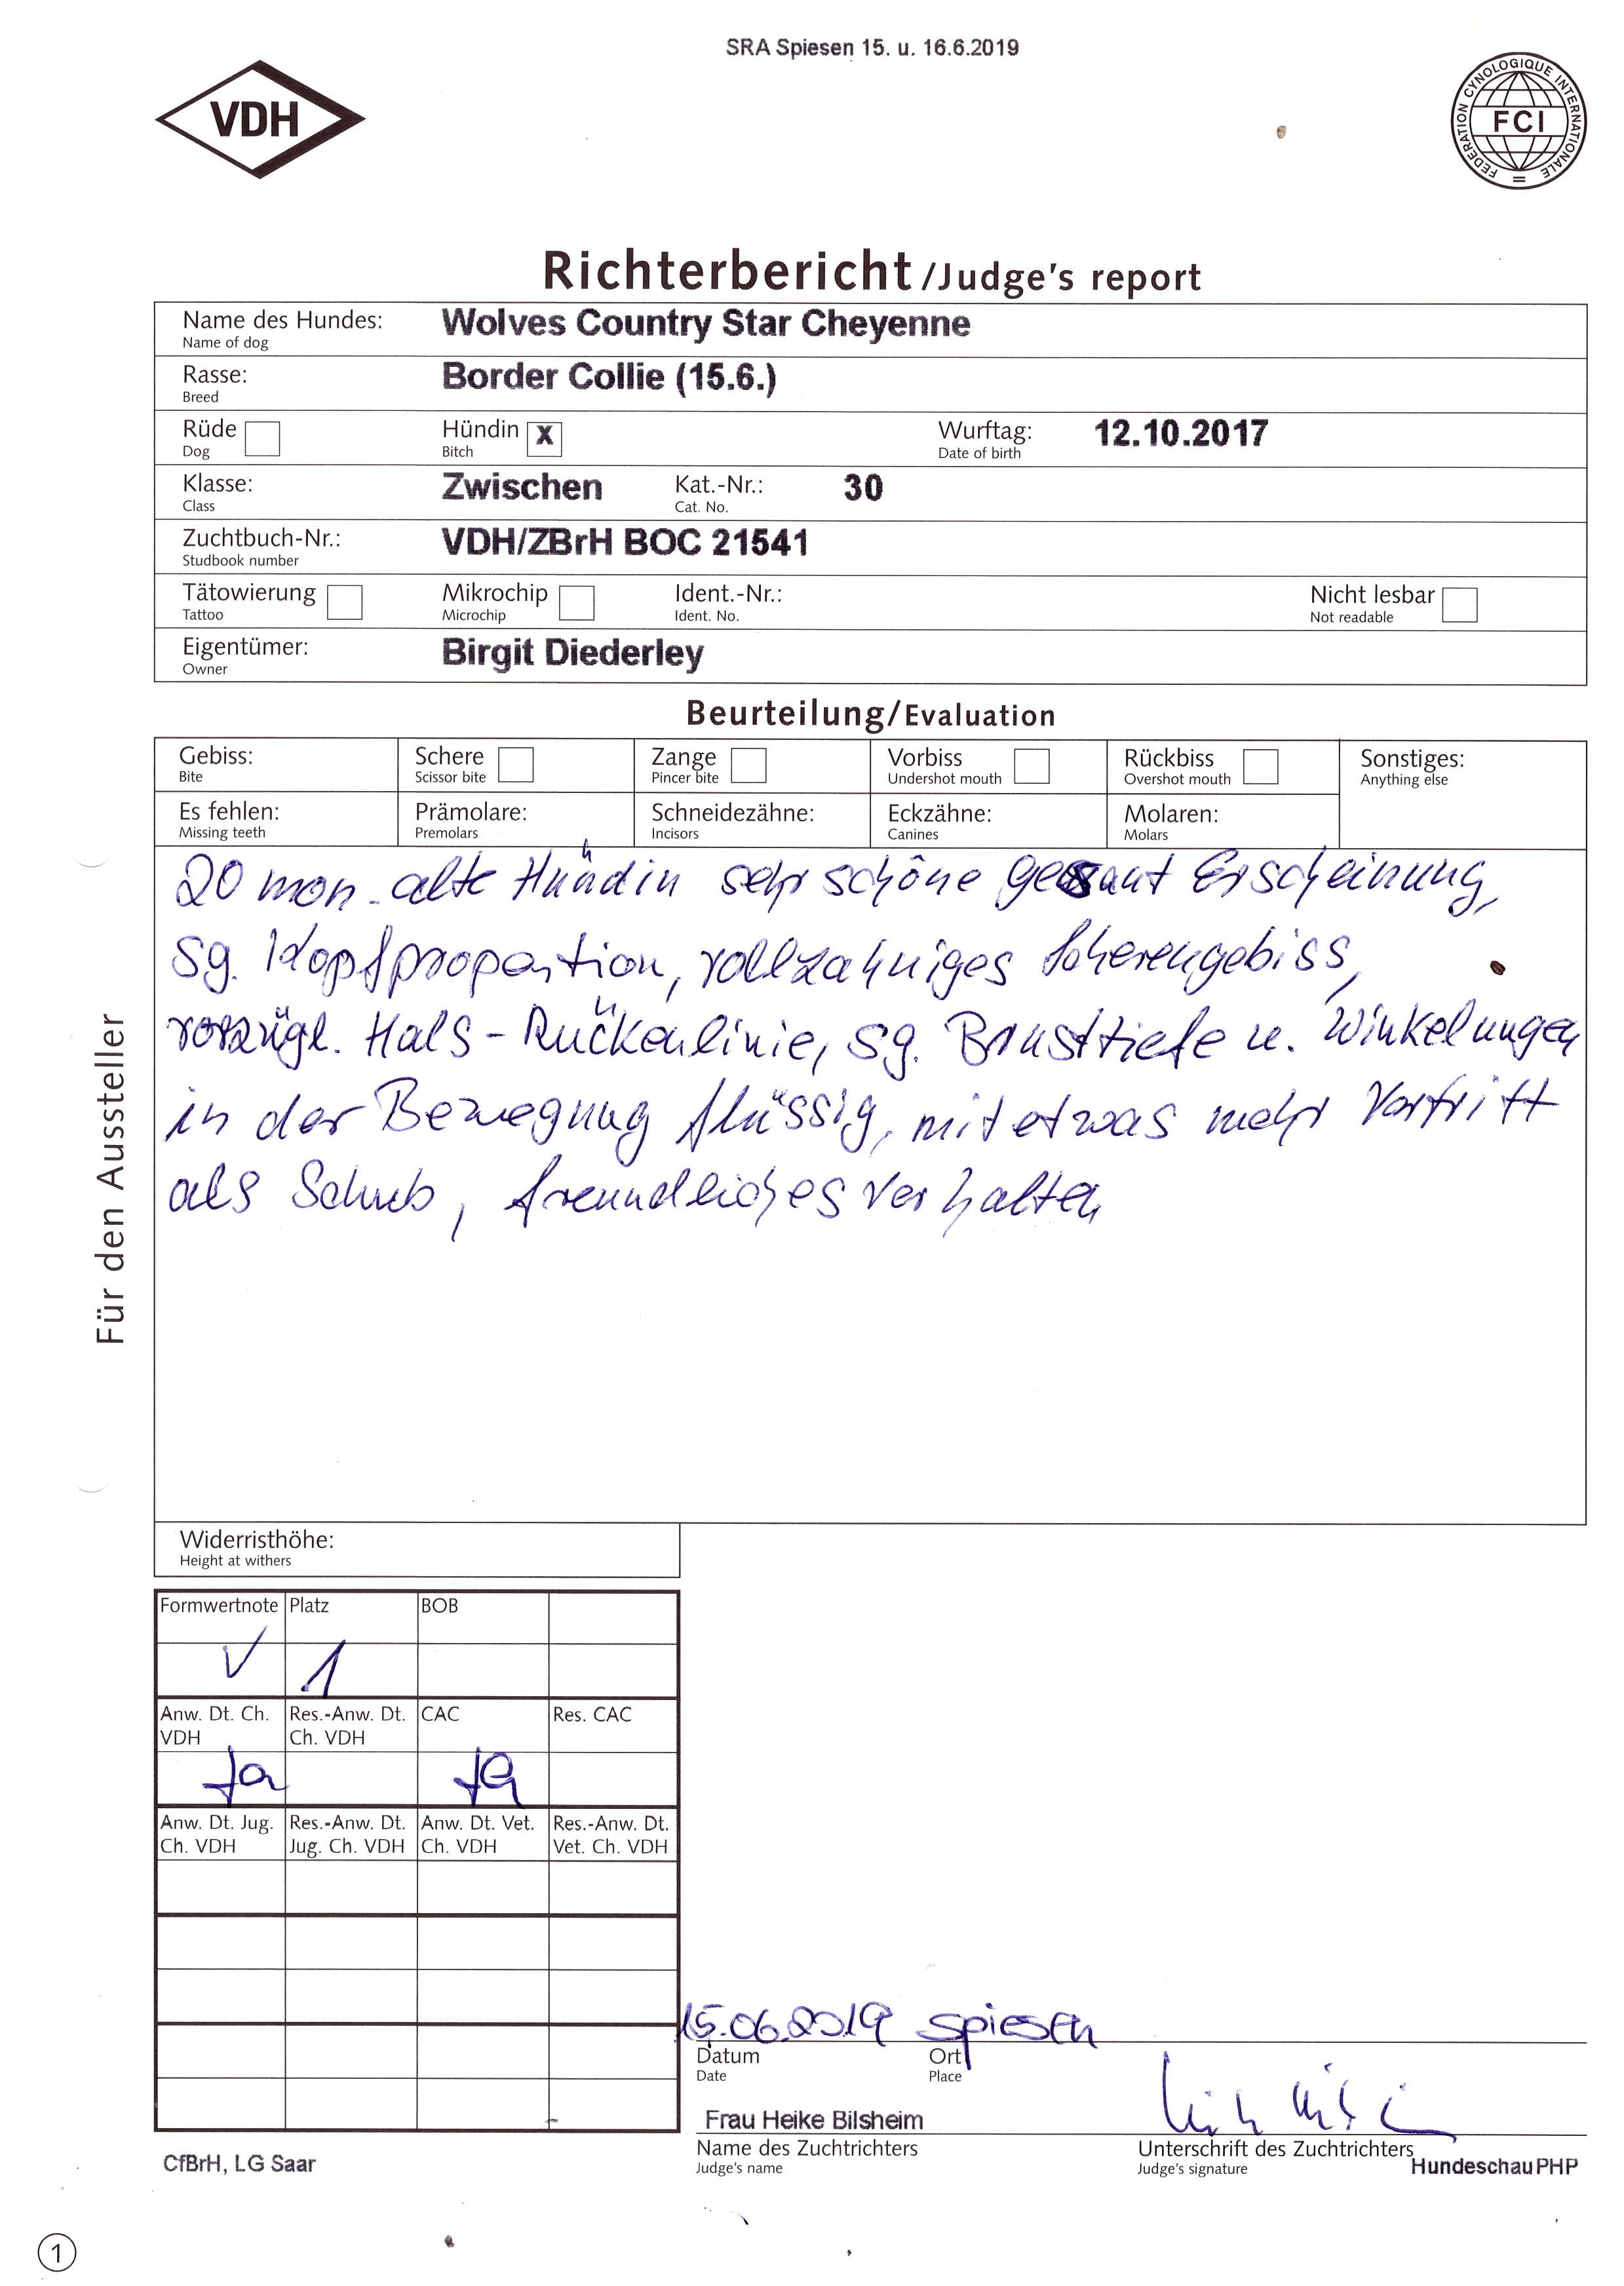 SRA Spiesen 15. u. 16.6.2019
VDH
FEDERATION CYNOLOGIQUE INTERNATIONALE
FCI
Richterbericht /Judge's report
Name des Hundes: Wolves Country Star Cheyenne
Name of dog
Rasse: Border Collie (15.6.)
Breed
Rüde Hündin X Wurftag: 12.10.2017
Dog Bitch Date of birth
Klasse: Zwischen Kat.-Nr.: 30
Class Cat. No.
Zuchtbuch-Nr.: VDH/ZBrH BOC 21541
Studbook number
Tätowierung Mikrochip Ident.-Nr.: Nicht lesbar
Tattoo Microchip Ident. No. Not readable
Eigentümer: Birgit Diederley
Owner
Beurteilung/Evaluation
Gebiss: Schere Zange Vorbiss Rückbiss Sonstiges:
Bite Scissor bite Pincer bite Undershot mouth Overshot mouth Anything else
Es fehlen: Prämolare: Schneidezähne: Eckzähne: Molaren:
Missing teeth Premolars Incisors Canines Molars
20 mon. alte Hündin sehr schöne gesamt Erscheinung,
sg. Kopfproportion, vollzahniges Scherengebiss,
vorzügl. Hals-Rückenlinie, sg. Brusttiefe u. Winkelungen
in der Bewegung flüssig, mit etwas mehr Vortritt
als Schub, freundliches Verhalten
Für den Aussteller
Widerristhöhe:
Height at withers
Formwertnote Platz BOB
V 1
Anw. Dt. Ch. Res.-Anw. Dt. CAC Res. CAC
VDH Ch. VDH
Ja Ja
Anw. Dt. Jug. Res.-Anw. Dt. Anw. Dt. Vet. Res.-Anw. Dt.
Ch. VDH Jug. Ch. VDH Ch. VDH Vet. Ch. VDH
15.06.2019 Spiesen
Datum Ort
Date Place
Frau Heike Bilsheim
Name des Zuchtrichters Unterschrift des Zuchtrichters
Judge's name Judge's signature
CfBrH, LG Saar HundeschauPHP
1